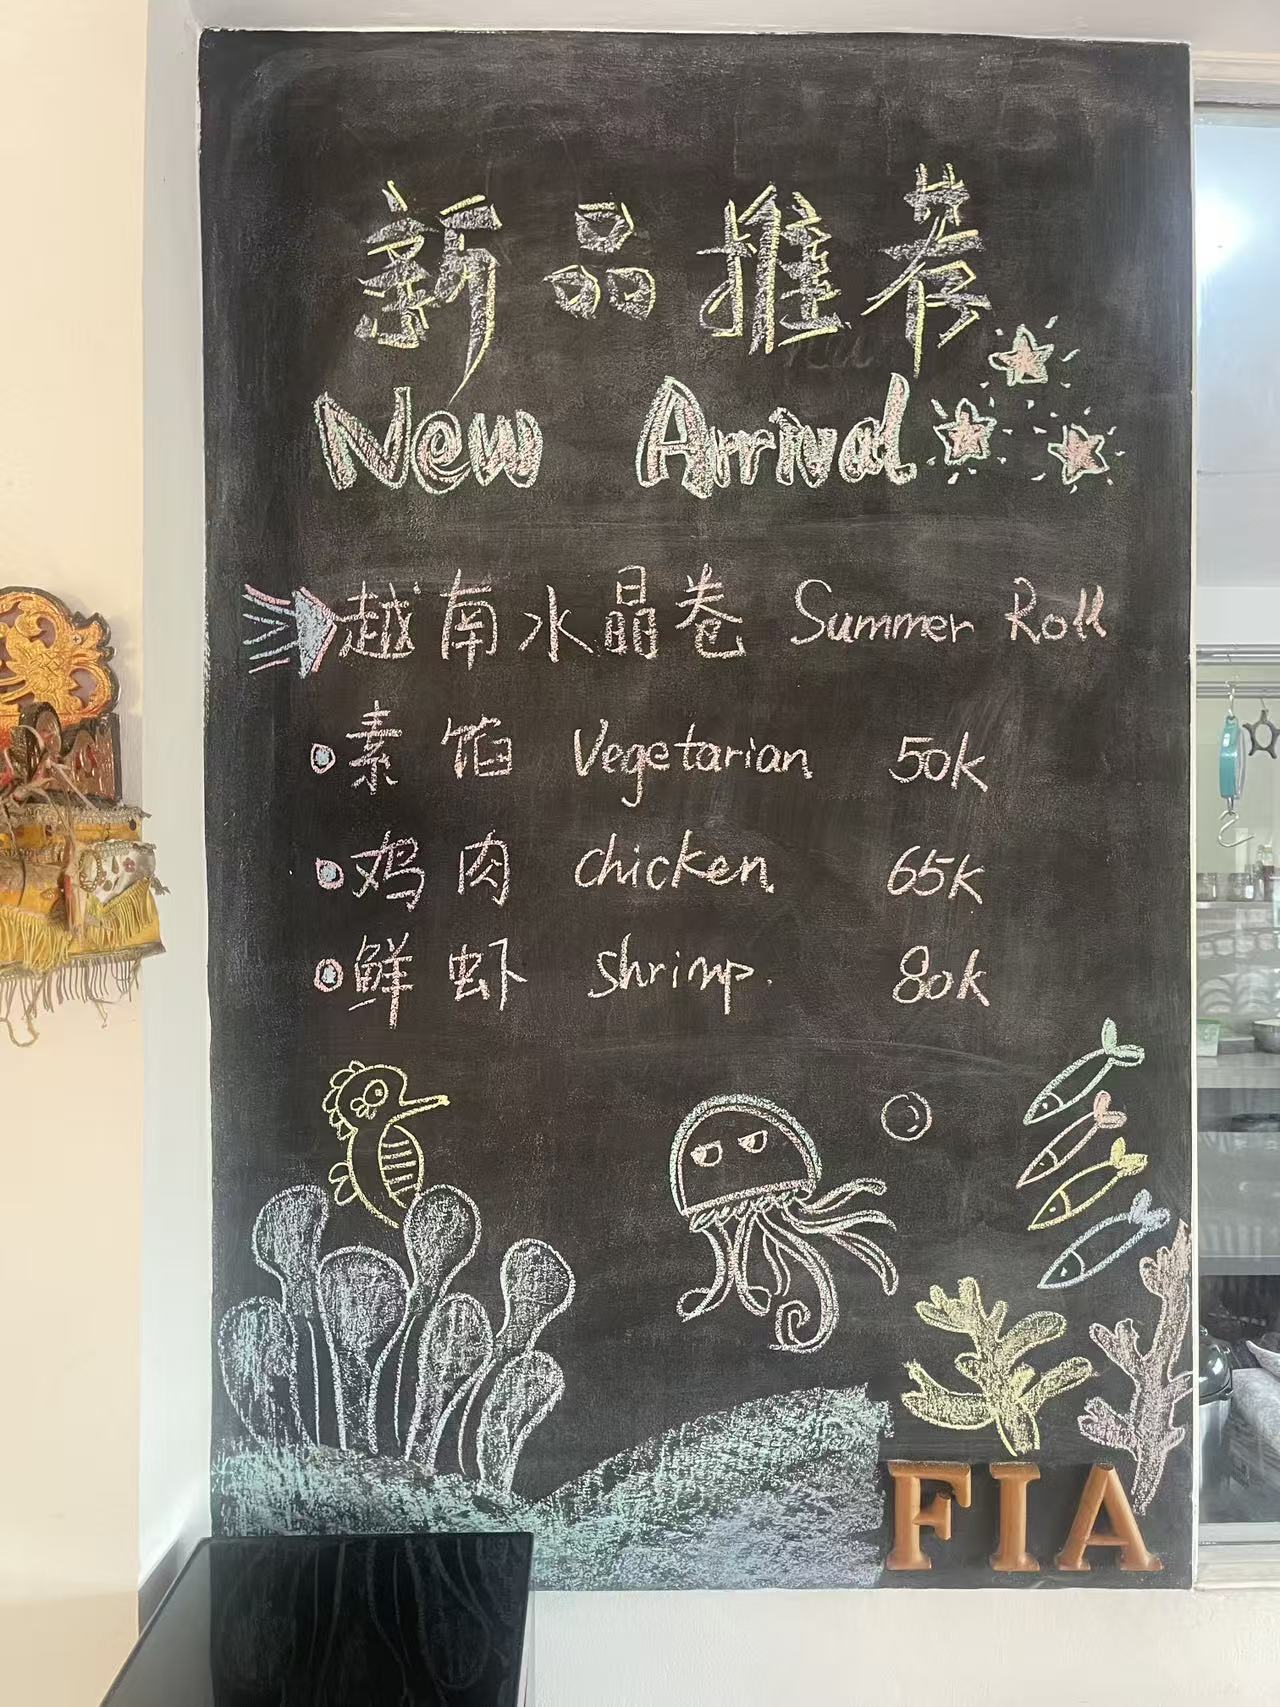 新品推荐
New Arrival
越南水晶卷 Summer Roll
素馅 Vegetarian 50k
鸡肉 chicken 65k
鲜虾 shrimp. 80k
FIA